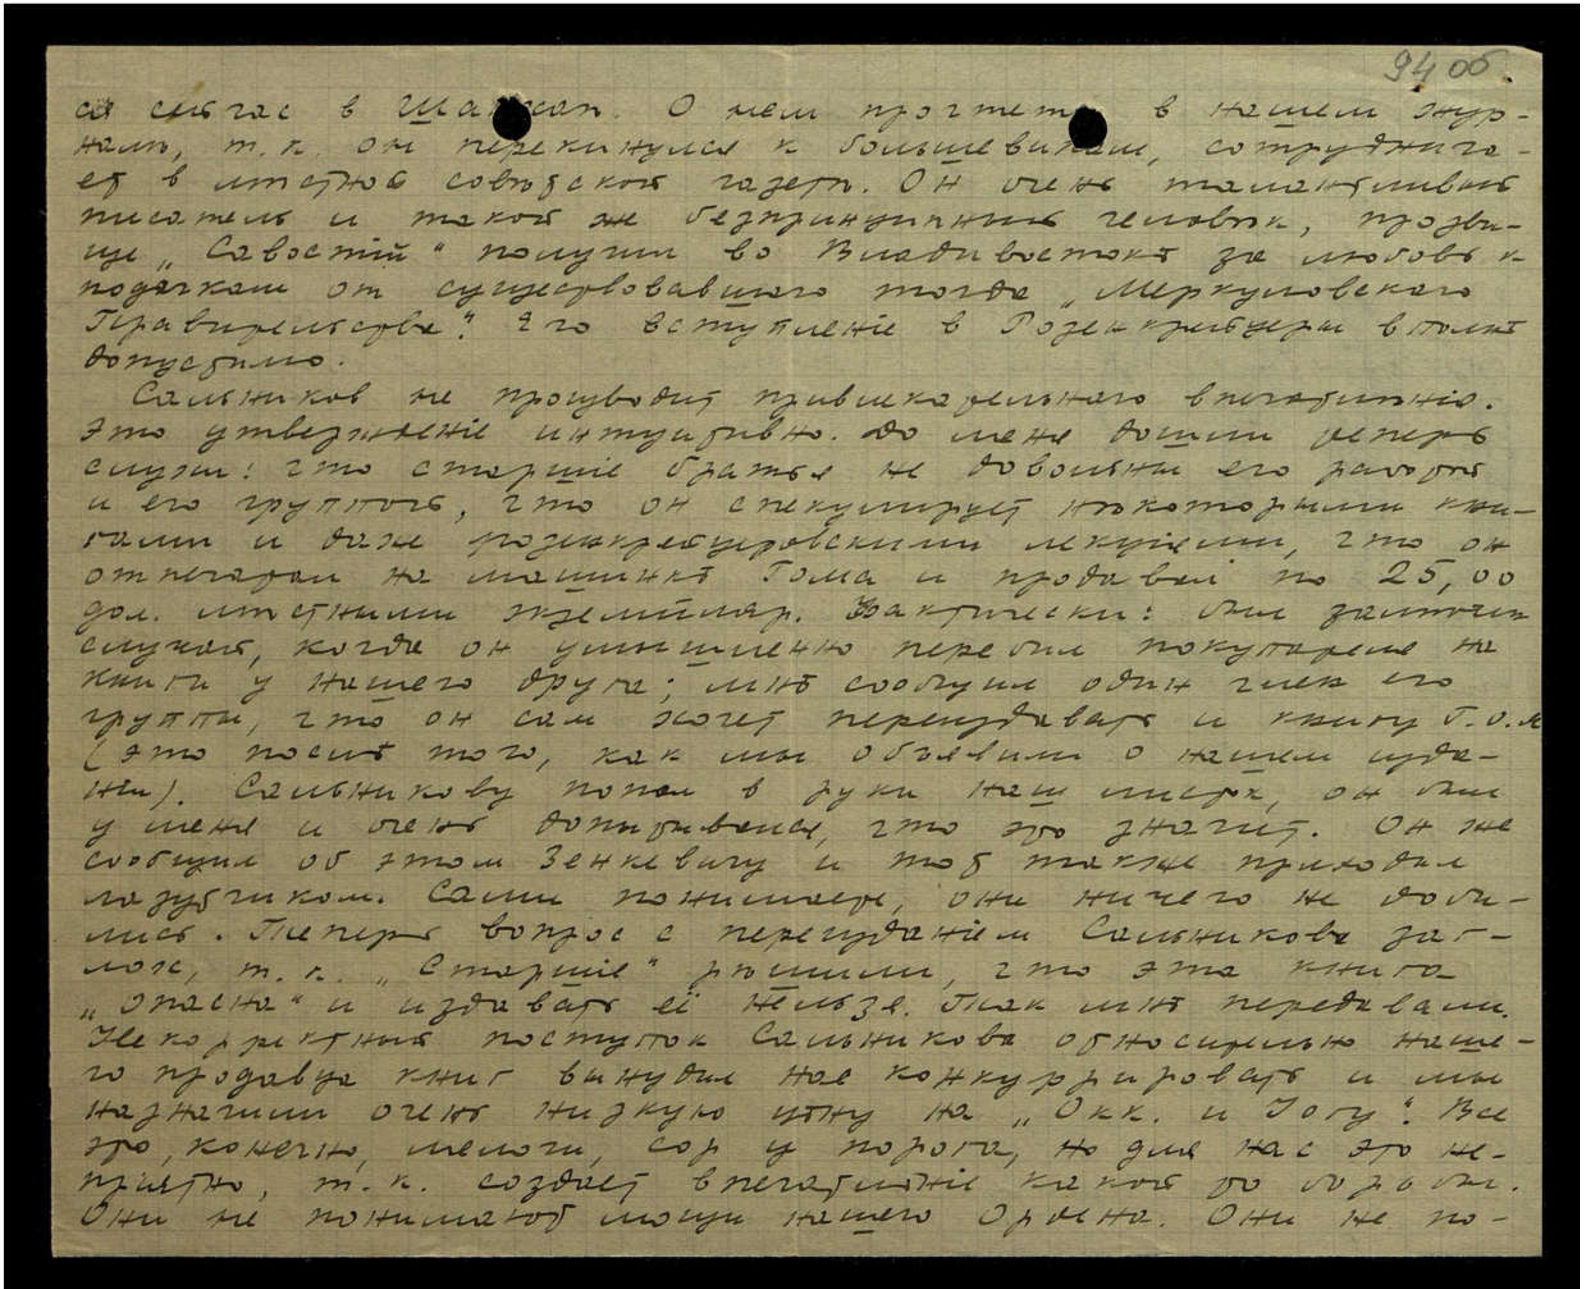 94 об.
ся сейчас в Шанхае. О нем прочтете в нашем жур-
налѣ, т.к. он перекинулся к большевикам, сотруднича-
ет в мѣстной совѣтской газетѣ. Он очень талантливый
писатель и такой же безпринципный человѣк, прозви-
ще „Савостій“ получил во Владивостокѣ за любовь к
подачкам от существовавшаго тогда „Меркуловскаго
Правительства“. Его вступленіе в Розенкрейцеры вполнѣ
допустимо.
Сальников не производит привлекательнаго впечатлѣнія.
Это утвержденіе интуитивно. До меня дошли теперь
слухи: что старшіе братья не довольны его работой
и его группой, что он спекулирует нѣкоторыми кни-
гами и даже розенкрейцеровскими лекціями, что он
отпечатал на машинкѣ Тома и продавал по 25,00
дол. мѣстными экземпляр. Фактически: был замѣчен
случай, когда он умышленно перебил покупателя на
книги у нашего друга; мнѣ сообщил один член его
группы, что он сам хочет переиздавать и книгу Г.О.М
(это послѣ того, как мы объявили о нашем изда-
ніи). Сальникову попал в руки наш листок, он был
у меня и очень допытывался, что это значит. Он же
сообщил об этом Зенкевичу и тот также приходил
лазутчиком. Сами понимаете, они ничего не доби-
лись. Теперь вопрос с переизданіем Сальникова заг-
лох, т.к. „Старшіе“ рѣшили, что эта книга
„опасна“ и издавать её нельзя. Так мнѣ передавали.
Некорректный поступок Сальникова относительно наше-
го продавца книг вынудил нас конкуррировать и мы
назначили очень низкую цѣну на „Окк. и Йогу“. Все
это, конечно, мелочи, сор у порога, но для нас это не-
пріятно, т.к. создает впечатлѣніе какой то борьбы.
Они не понимают мощи нашего Ордена. Они не по-